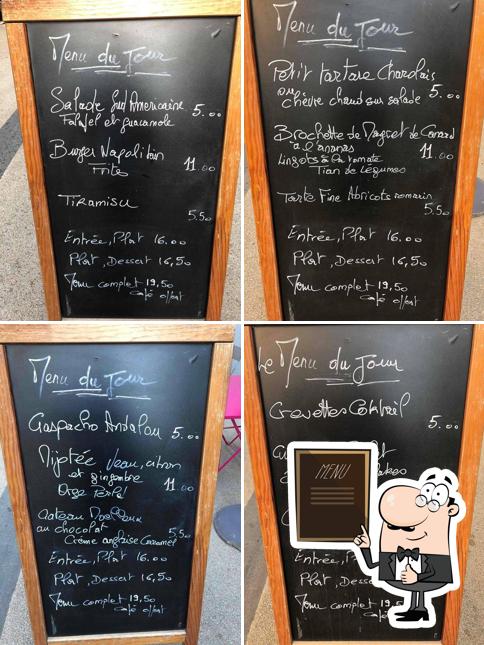 Menu du Jour
Salade Sud Americaine 5.00
Falafel et guacamole
Burger Napolitain
11.00
Frites
Tiramisu
5.50
Entrée, Plat 16.00
Plat, Dessert 16,50
Menu complet 19,50
café offert
Menu du Jour
Petit tartare Charolais
ou 5.00
chèvre chaud sur salade
Brochette de Magret de Canard
à l'ananas 11.00
Lingots à la tomate
Tian de Légumes
Tarte Fine Abricots romarin
5.50
Entrée, Plat 16.00
Plat, Dessert 16,50
Menu complet 19,50
café offert
Menu du Jour
Gaspacho Andalou 5.00
Veau, citron
et gingembre
Orge Perlé 11.00
Gateau Moelleux
au chocolat 5.50
Crème anglaise Caramel
Entrée, Plat 16.00
Plat, Dessert 16,50
Menu complet 19,50
café offert
Le Menu du Jour
Crevettes Cocktail
5.00
MENU
Entrée,
Plat, Dess
Menu complet 19,5
café